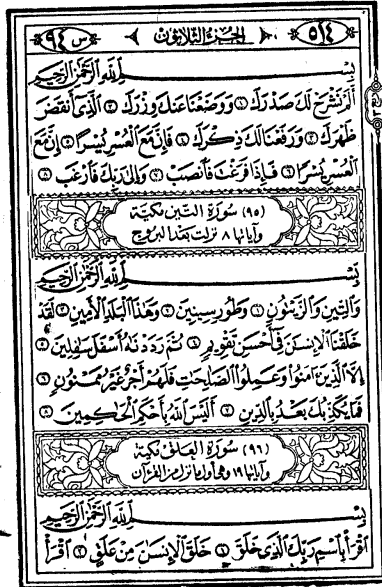 ٥١٤ الجزء الثلاثون س ٩٤
بِسْمِ اللَّهِ الرَّحْمَٰنِ الرَّحِيمِ
أَلَمْ نَشْرَحْ لَكَ صَدْرَكَ ١ وَوَضَعْنَا عَنكَ وِزْرَكَ ٢ الَّذِي أَنقَضَ
ظَهْرَكَ ٣ وَرَفَعْنَا لَكَ ذِكْرَكَ ٤ فَإِنَّ مَعَ الْعُسْرِ يُسْرًا ٥ إِنَّ مَعَ
الْعُسْرِ يُسْرًا ٦ فَإِذَا فَرَغْتَ فَانصَبْ ٧ وَإِلَىٰ رَبِّكَ فَارْغَب ٨
(٩٥) سورة التين مكية
وآياتها ٨ نزلت بعد البروج
بِسْمِ اللَّهِ الرَّحْمَٰنِ الرَّحِيمِ
وَالتِّينِ وَالزَّيْتُونِ ١ وَطُورِ سِينِينَ ٢ وَهَٰذَا الْبَلَدِ الْأَمِينِ ٣ لَقَدْ
خَلَقْنَا الْإِنسَٰنَ فِي أَحْسَنِ تَقْوِيمٍ ٤ ثُمَّ رَدَدْنَٰهُ أَسْفَلَ سَٰفِلِينَ ٥
إِلَّا الَّذِينَ ءَامَنُوا وَعَمِلُوا الصَّالِحَاتِ فَلَهُمْ أَجْرٌ غَيْرُ مَمْنُونٍ ٦
فَمَا يُكَذِّبُكَ بَعْدُ بِالدِّينِ ٧ أَلَيْسَ اللَّهُ بِأَحْكَمِ الْحَاكِمِينَ ٨
(٩٦) سورة العلق مكية
وآياتها ١٩ وهي أول ما نزل من القرآن
بِسْمِ اللَّهِ الرَّحْمَٰنِ الرَّحِيمِ
اقْرَأْ بِاسْمِ رَبِّكَ الَّذِي خَلَقَ ١ خَلَقَ الْإِنسَٰنَ مِنْ عَلَقٍ ٢ اقْرَأْ